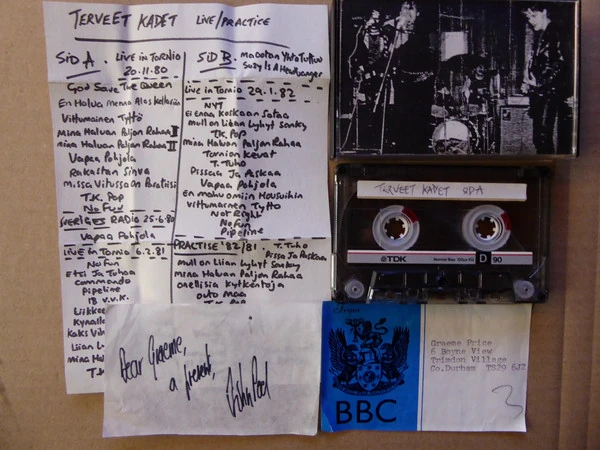 TERVEET KADET LIVE/PRACTICE
SID A. LIVE in TORNIO
20.11.80
God Save The Queen
En Halua menna Alas
Vittumainen Tyttö
Mina Haluan Paljon Rahaa I
mina Haluan Paljon Rahaa II
Vapaa Pohjola
Rakastan Sinua
missa Vitussa On Paratiisi
T.K. Pop
No Fun
SVERIGES RADIO 25-6-80
Vapaa Pohjola
LIVE in TORNIO 6.2.81
No Fun
Etsi Ja Tuhoa
commando
pipeline
18 v.v.K.
Liikkee
Kynall
Kaks Vi
Liian Ly
Mina Ha
T.K
SID B. maoton
Suzy Is A Headbanger
Live in Tornio 29.1.82
NYT
Ei enna Koskaan Sotaa
mull on Liian Lyhyt Sanky
T.K. Pop
Mina Haluan Paljon Rahaa
Tornion Kevat
T. Tuho
Pissaa Ja Paskaa
Vapaa Pohjola
En mahu omiin Housuihin
Vittumainen Tytto
Not Right
No Fun
Pipeline
PRACTISE '82/81. T. Tuho
Pissa Ja Paskaa
mull on Liian Lyhyt Sanky
Mina Haluan Paljon Rahaa
onellisia Kytkentoja
outo maa
TERVEET KADET
TDK
D 90
Dear Graeme,
a present,
John Peel
BBC
Graeme Price
6 Boyne View
Trimdon Village
Co.Durham TS29 6JZ
3